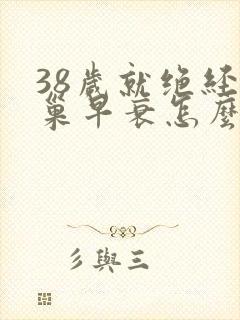 38歲就絕經
巢早衰怎麼
彡與三